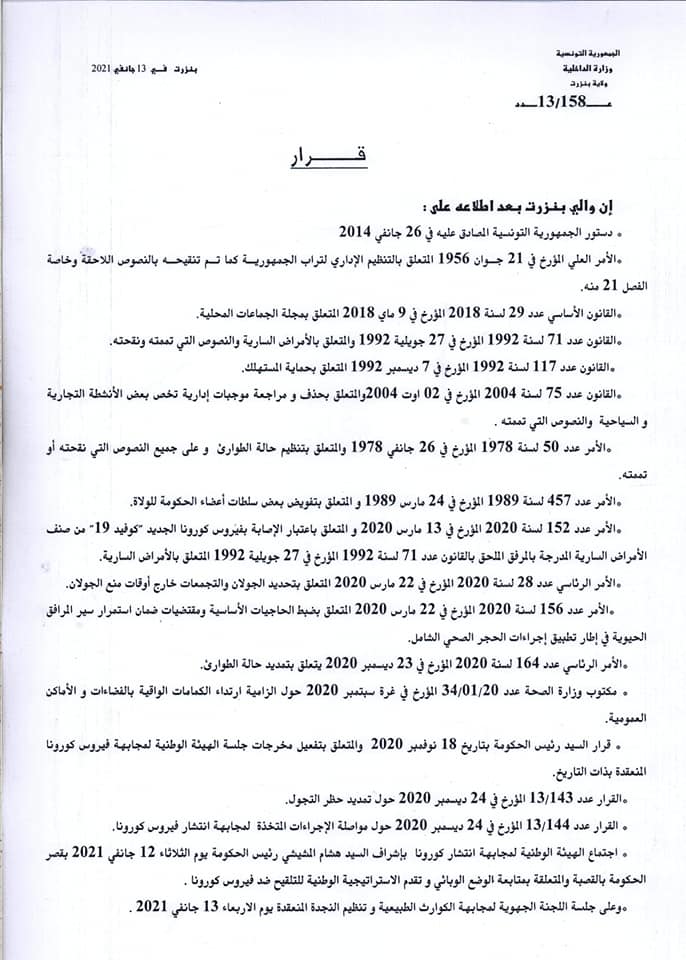 الجمهورية التونسية
وزارة الداخلية
ولاية بنزرت
عـــــ13/158ــــدد
بنزرت في 13 جانفي 2021
قـــــرار
إن والي بنزرت بعد اطلاعه على :
• دستور الجمهورية التونسية المصادق عليه في 26 جانفي 2014
•الأمر العلي المؤرخ في 21 جـوان 1956 المتعلق بالتنظيم الإداري لتراب الجمهوريـة كما تـم تنقيحـه بالنصوص اللاحقة وخاصة
الفصل 21 منه.
•القانون الأساسي عدد 29 لسنة 2018 المؤرخ في 9 ماي 2018 المتعلق بمجلة الجماعات المحلية.
•القانون عدد 71 لسنة 1992 المؤرخ في 27 جويلية 1992 والمتعلق بالأمراض السارية والنصوص التي تممته ونقحته.
•القانون عدد 117 لسنة 1992 المؤرخ في 7 ديسمبر 1992 المتعلق بحماية المستهلك.
•القانون عدد 75 لسنة 2004 المؤرخ في 02 اوت 2004والمتعلق بحذف و مراجعة موجبات إدارية تخص بعض الأنشطة التجارية
و السياحية والنصوص التي تممته .
•الأمر عدد 50 لسنة 1978 المؤرخ في 26 جانفي 1978 والمتعلق بتنظيم حالة الطوارئ و على جميع النصوص التي نقحته أو
تممته.
•الأمر عدد 457 لسنة 1989 المؤرخ في 24 مارس 1989 و المتعلق بتفويض بعض سلطات أعضاء الحكومة للولاة.
•الأمر عدد 152 لسنة 2020 المؤرخ في 13 مارس 2020 و المتعلق باعتبار الإصابة بفيروس كورونا الجديد "كوفيد 19" من صنف
الأمراض السارية المدرجة بالمرفق الملحق بالقانون عدد 71 لسنة 1992 المؤرخ في 27 جويلية 1992 المتعلق بالأمراض السارية.
•الأمر الرئاسي عدد 28 لسنة 2020 المؤرخ في 22 مارس 2020 المتعلق بتحديد الجولان والتجمعات خارج أوقات منع الجولان.
•الأمر عدد 156 لسنة 2020 المؤرخ في 22 مارس 2020 المتعلق بضبط الحاجيات الأساسية ومقتضيات ضمان استمرار سير المرافق
الحيوية في إطار تطبيق إجراءات الحجر الصحي الشامل.
•الأمر الرئاسي عدد 164 لسنة 2020 المؤرخ في 23 ديسمبر 2020 يتعلق بتمديد حالة الطوارئ.
• مكتوب وزارة الصحة عدد 34/01/20 المؤرخ في غرة سبتمبر 2020 حول الزامية ارتداء الكمامات الواقية بالفضاءات و الأماكن
العمومية.
• قرار السيد رئيس الحكومة بتاريخ 18 نوفمبر 2020 والمتعلق بتفعيل مخرجات جلسة الهيئة الوطنية لمجابهة فيروس كورونا
المنعقدة بذات التاريخ.
•القرار عدد 13/143 المؤرخ في 24 ديسمبر 2020 حول تمديد حظر التجول.
• القرار عدد 13/144 المؤرخ في 24 ديسمبر 2020 حول مواصلة الإجراءات المتخذة لمجابهة انتشار فيروس كورونا.
• اجتماع الهيئة الوطنية لمجابهة انتشار كورونا بإشراف السيد هشام المشيشي رئيس الحكومة يوم الثلاثاء 12 جانفي 2021 بقصر
الحكومة بالقصبة والمتعلقة بمتابعة الوضع الوبائي و تقدم الاستراتيجية الوطنية للتلقيح ضد فيروس كورونا .
•وعلى جلسة اللجنة الجهوية لمجابهة الكوارث الطبيعية و تنظيم النجدة المنعقدة يوم الاربعاء 13 جانفي 2021 .